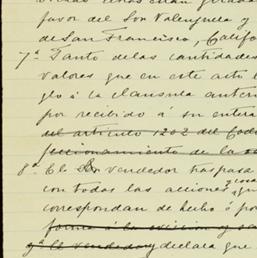 favor del Sor Valenzuela y
de San Francisco, Califo
7ª Tanto de las cantidades
valores que en este acto
glo á la clausula anter
por recibido á su entera
del articulo 1202 del Cod
feccionamiento de la
8ª El Sor vendedor traspasa
con todas las acciones y cosa
correspondan de hecho ó po
forma á la eviccion y sa
y el vendedor declara que